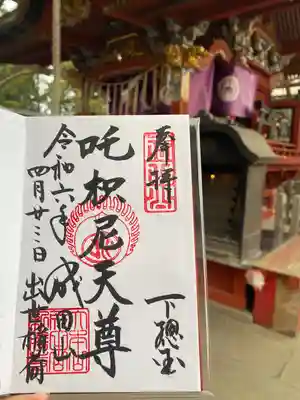 奉拝
下總国
吒枳尼天尊
成田山
出世稲荷
令和六年
四月廿三日